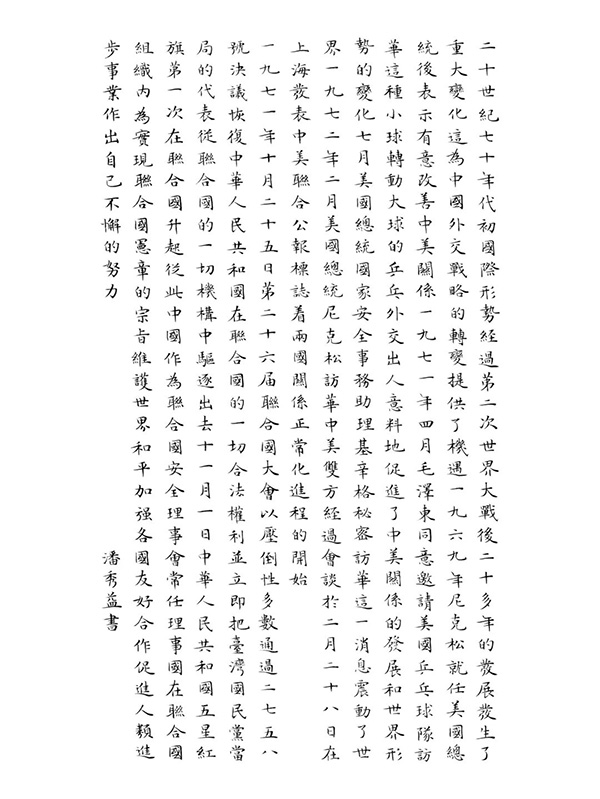 二十世紀七十年代初國際形勢經過第二次世界大戰後二十多年的發展發生了
重大變化這為中國外交戰略的轉變提供了機遇一九六九年尼克松就任美國總
統後表示有意改善中美關係一九七一年四月毛澤東同意邀請美國乒乓球隊訪
華這種小球轉動大球的乒乓外交出人意料地促進了中美關係的發展和世界形
勢的變化七月美國總統國家安全事務助理基辛格秘密訪華這一消息震動了世
界一九七二年二月美國總統尼克松訪華中美雙方經過會談於二月二十八日在
上海發表中美聯合公報標誌着兩國關係正常化進程的開始
一九七一年十月二十五日第二十六届聯合國大會以壓倒性多數通過二七五八
號決議恢復中華人民共和國在聯合國的一切合法權利並立即把臺灣國民黨當
局的代表從聯合國的一切機構中驅逐出去十一月一日中華人民共和國五星紅
旗第一次在聯合國升起從此中國作為聯合國安全理事會常任理事國在聯合國
組織内為實現聯合國憲章的宗旨維護世界和平加强各國友好合作促進人類進
步事業作出自己不懈的努力
潘秀益書